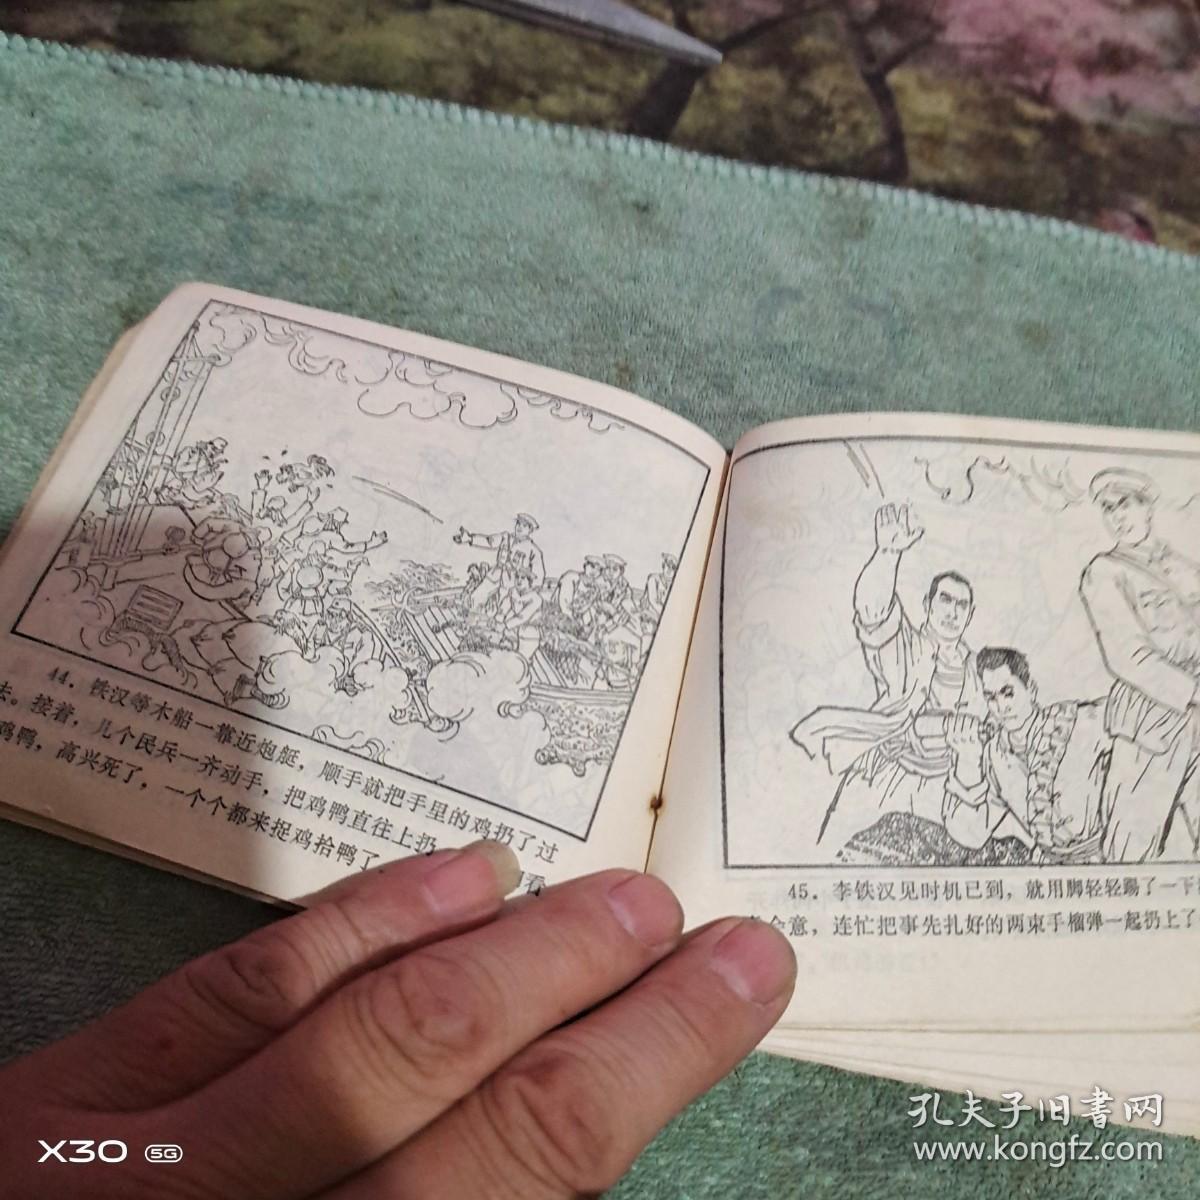 44．铁汉等木船一靠近炮艇，顺手就把手里的鸡扔了过
去。接着，几个民兵一齐动手，把鸡鸭直往上扔
鸡鸭，高兴死了，一个个都来捉鸡拾鸭了
看
45．李铁汉见时机已到，就用脚轻轻踢了一下
会意，连忙把事先扎好的两束手榴弹一起扔上了
X30 5G
孔夫子旧书网
www.kongfz.com